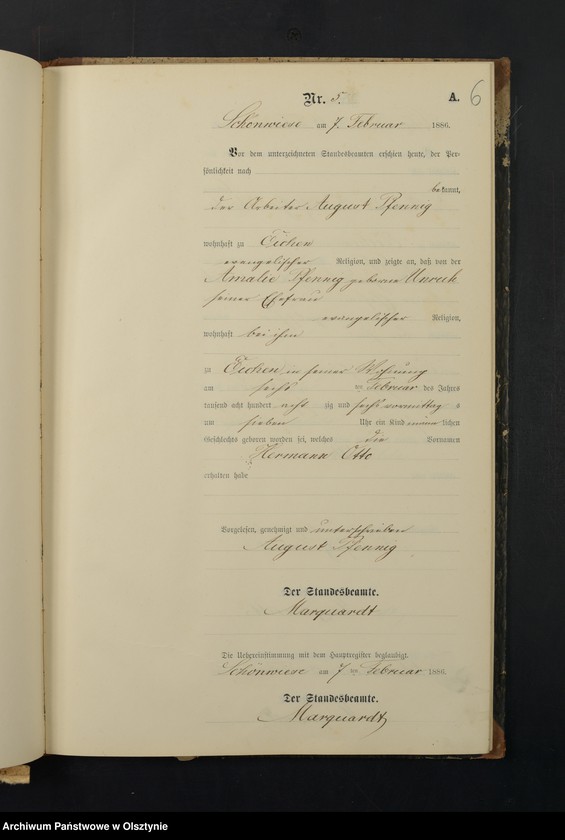 Nr. 5.
A.
6
Schönwiese am 7. Februar 1886.
Vor dem unterzeichneten Standesbeamten erschien heute, der Per-
sönlichkeit nach
bekannt,
der Arbeiter August Pfennig
wohnhaft zu Eichen
evangelischer Religion, und zeigte an, daß von der
Amalie Pfennig geborene Unruh
seiner Ehefrau
evangelischer Religion,
wohnhaft bei ihm
zu Eichen in seiner Wohnung
am sechs ten Februar des Jahres
tausend acht hundert acht zig und sechs vormittag s
um sieben Uhr ein Kind männ lichen
Geschlechts geboren worden sei, welches die Vornamen
Hermann Otto
erhalten habe
Vorgelesen, genehmigt und unterschrieben
August Pfennig
Der Standesbeamte.
Marquardt
Die Uebereinstimmung mit dem Hauptregister beglaubigt.
Schönwiese am 7 ten Februar 1886.
Der Standesbeamte.
Marquardt
Archiwum Państwowe w Olsztynie